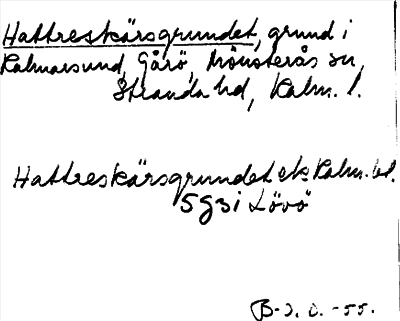 Hattreskärsgrundet, grund i
Kalmarsund, Gårö, Mönsterås sn,
Stranda hd, Kalm. l.
Hattreskärsgrundet ek. Kalm. bl.
5g3i Lövö
B-J. O. -55.